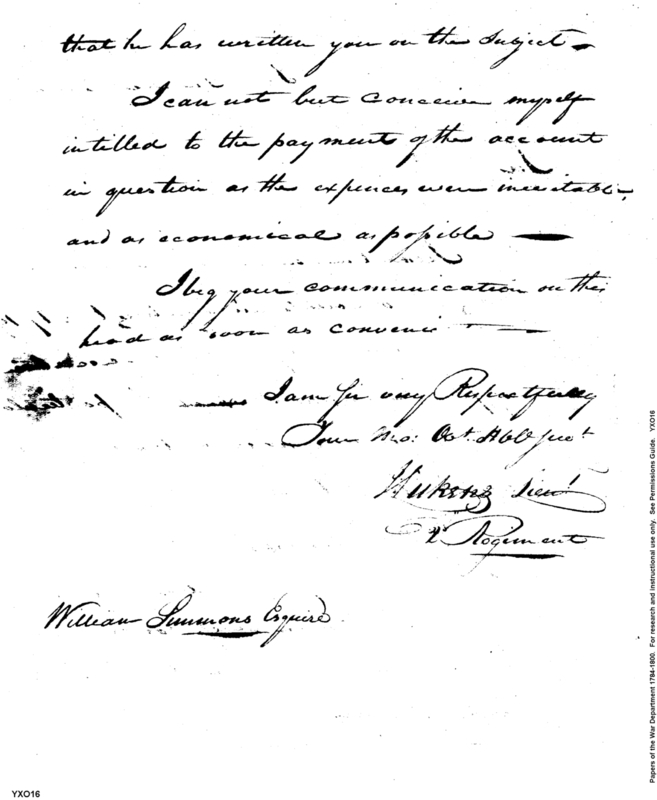 that he has written you on the subject —
I can not but conceive myself
intilled to the payment of the account
in question as the expences were inevitable,
and as economical as possible —
I beg your communication on this
head as soon as convenie —
I am Sir very Respectfully
Your Mo: Obt Hble Servt
Lieut
2d Regiment
William Simmons Esquire
YXO16
Papers of the War Department 1784-1800. For research and instructional use only. See Permissions Guide. YXO16